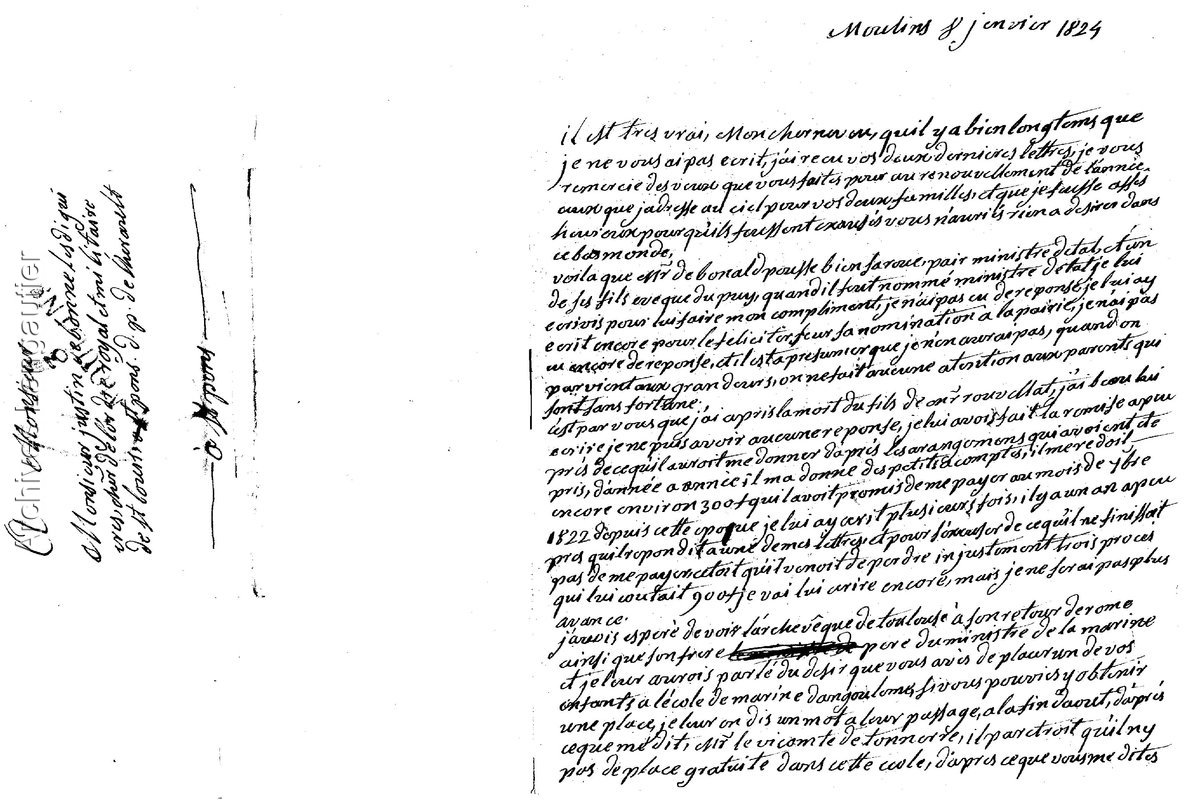 Moulins 8 janvier 1824
il est tres vrai, Mon cher neveu, quil y a bien longtems que
je ne vous ai pas ecrit, j'ai recu vos deux dernieres lettres, je vous
remercie des veux que vous faites pour au renouvellement de l'année
ceux que j'adresse au ciel pour vos deux familles, et que je fusse assés
heureux pour qu'ils fussent exausés vous n'auriés rien a desirer dans
ce bas monde,
voila que Mr de bonald pousse bien sa roue, pair ministre detat, et un
de ses fils eveque du puy, quand il fut nommé ministre detat je lui
ecrivis pour lui faire mon compliment, je n'ai pas eu de reponse, je lui ay
ecrit encore pour le feliciter sur sa nomination a la pairie, je n'ai pas
eu encore de reponse, et il est a presumer que je n'en aurai pas, quand on
parvient aux grandeurs, on ne fait aucune atention aux parents qui
sont sans fortune.
cest par vous que j'ai apris la mort du fils de mr rouvellat, j'ai beau lui
ecrire je ne puis avoir aucune reponse, je lui avois fait la remise a peu
prés de ce qu'il auroit me donner d'aprés les arangemens qui avoient eté
pris, d'année a année il m'a donné des petits acomptes, il me redoit
encore environ 300# qu'il avoit promis de me payer au mois de 7bre
1822 depuis cette epoque je lui ay ecrit plusieurs fois, il y a un an a peu
pres qu'il repondit a une de mes lettres, et pour s'excuser de ce qu'il ne finissoit
pas de me payer, c'etoit qu'il venoit de perdre injustement trois procés
qui lui coutait 900# je vai lui ecrire encore, mais je ne serai pas plus
avancé.
j'avois esperé de voir l'archevêque de toulouse à son retour de rome
ainsi que son frere pere du ministre de la marine
et je leur aurois parlé du desir que vous avés de placer un de vos
enfants a l'école de marine d'angouleme si vous pouviés y obtenir
une place, je leur en dis un mot a leur passage, a la fin d'aout, d'aprés
ce que me dit, Mr le vicomte de tonnerre, il paroitroit qu'il ny
pas de place gratuite dans cette ecole, d'apres ce que vous me dites
A Monsieur
Monsieur justin de bonne lesdigui
eres, chër de l'ordre royal et militaire
de st louis, a st pons. d. p. de lherault
à st pons
Archives
gautier